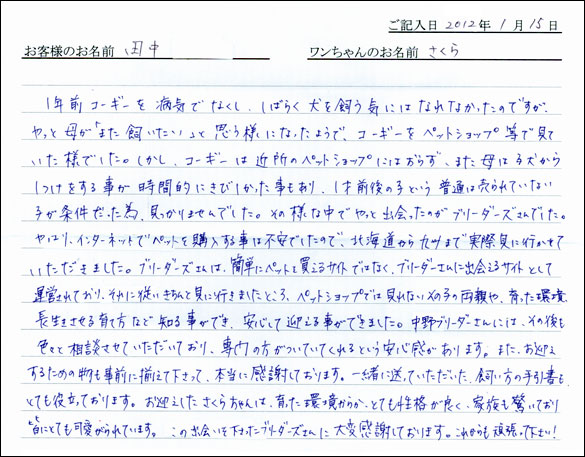 ご記入日 2012年 1月 15日
お客様のお名前 田中 ワンちゃんのお名前 さくら
1年前コーギーを病気でなくし、しばらく犬を飼う気にはなれなかったのですが、
やっと母が「また飼いたい」と思う様になったようで、コーギーをペットショップ等で見て
いた様でした。しかし、コーギーは近所のペットショップにはおらず、また母は子犬から
しつけをする事が時間的にきびしかった事もあり、1才前後の子という普通は売られていない
子が条件だった為、見つかりませんでした。その様な中でやっと出会ったのがブリーダーズさんでした。
やはり、インターネットでペットを購入する事は不安でしたので、北海道から九州まで実際見に行かせて
いただきました。ブリーダーズさんは、簡単にペットを買えるサイトではなく、ブリーダーさんに出会えるサイトとして
運営されており、それに従いきちんと見に行きましたところ、ペットショップでは見れないその子の両親や、育った環境、
長生きさせる育て方など知る事ができ、安心して迎える事ができました。中野ブリーダーさんには、その後も
色々と相談させていただいており、専門の方がついていてくれるという安心感があります。また、お迎え
するための物も事前に揃えて下さって、本当に感謝しております。一緒に送っていただいた、飼い方の手引書も
とても役立っております。お迎えしたさくらちゃんは、育った環境からか、とても性格が良く、家族も驚いており
皆にとても可愛がられています。この出会いを下さったブリーダーズさんに大変感謝しております。これからも頑張って下さい!